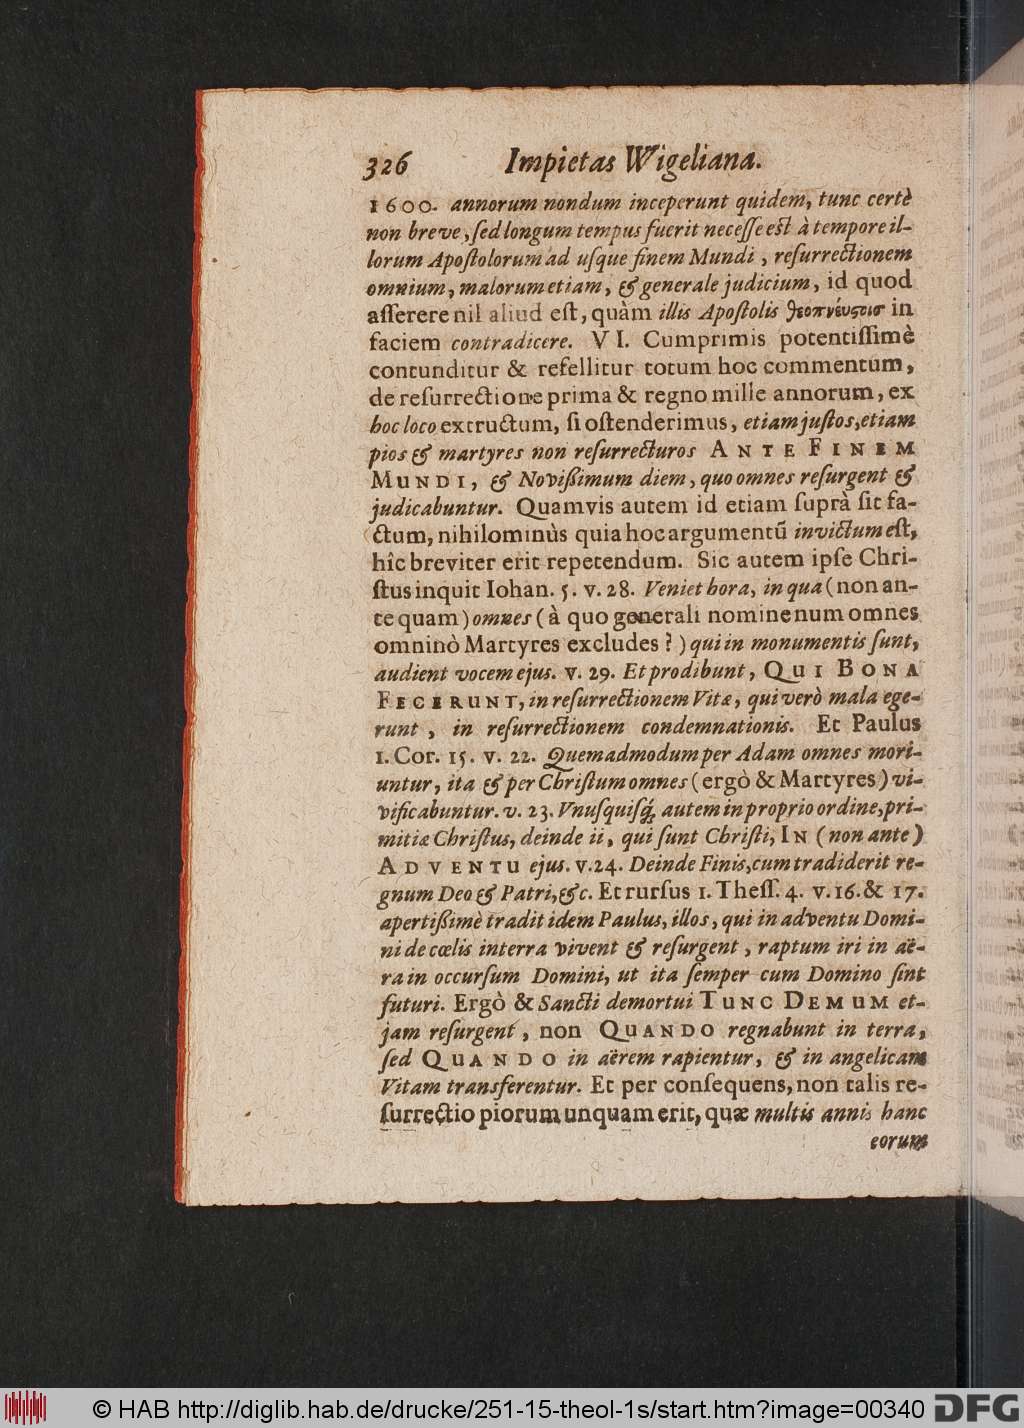 326 Impietas Wigeliana.
1600. annorum nondum inceperunt quidem, tunc certè
non breve, ſed longum tempus fuerit neceſſe eſt à tempore il-
lorum Apoſtolorum ad uſque finem Mundi, reſurrectionem
omnium, malorum etiam, & generale judicium, id quod
aſſerere nil aliud eſt, quàm illis Apoſtolis θεοπνεύςοισ in
faciem contradicere. VI. Cumprimis potentiſſimè
contunditur & refellitur totum hoc commentum,
de reſurrectione prima & regno mille annorum, ex
hoc loco extructum, ſi oſtenderimus, etiam juſtos, etiam
pios & martyres non reſurrecturos ANTE FINEM
MUNDI, & Noviſſimum diem, quo omnes reſurgent &
judicabuntur. Quamvis autem id etiam ſuprà ſit fa-
ctum, nihilominùs quia hoc argumentũ invictum eſt,
hîc breviter erit repetendum. Sic autem ipſe Chri-
ſtus inquit Iohan. 5. v. 28. Veniet hora, in qua (non an-
te quam) omnes (à quo generali nomine num omnes
omninò Martyres excludes?) qui in monumentis ſunt,
audient vocem ejus. v. 29. Et prodibunt, QUI BONA
FECERUNT, in reſurrectionem Vitæ, qui verò mala ege-
runt, in reſurrectionem condemnationis. Et Paulus
1. Cor. 15. v. 22. Quemadmodum per Adam omnes mori-
untur, ita & per Chriſtum omnes (ergò & Martyres) vi-
vificabuntur. v. 23. Vnuſquiſq́; autem in proprio ordine, pri-
mitiæ Chriſtus, deinde ii, qui ſunt Chriſti, IN (non ante)
ADVENTU ejus. v. 24. Deinde Finis, cum tradiderit re-
gnum Deo & Patri, &c. Et rurſus 1. Theſſ. 4. v. 16. & 17.
apertiſſimè tradit idem Paulus, illos, qui in adventu Domi-
ni de cœlis in terra vivent & reſurgent, raptum iri in aë-
ra in occurſum Domini, ut ita ſemper cum Domino ſint
futuri. Ergò & Sancti demortui TUNC DEMUM et-
jam reſurgent, non QUANDO regnabunt in terra,
ſed QUANDO in aërem rapientur, & in angelicam
Vitam transferentur. Et per conſequens, non talis re-
ſurrectio piorum unquam erit, quæ multis annis hanc
eorum
© HAB http://diglib.hab.de/drucke/251-15-theol-1s/start.htm?image=00340
DFG